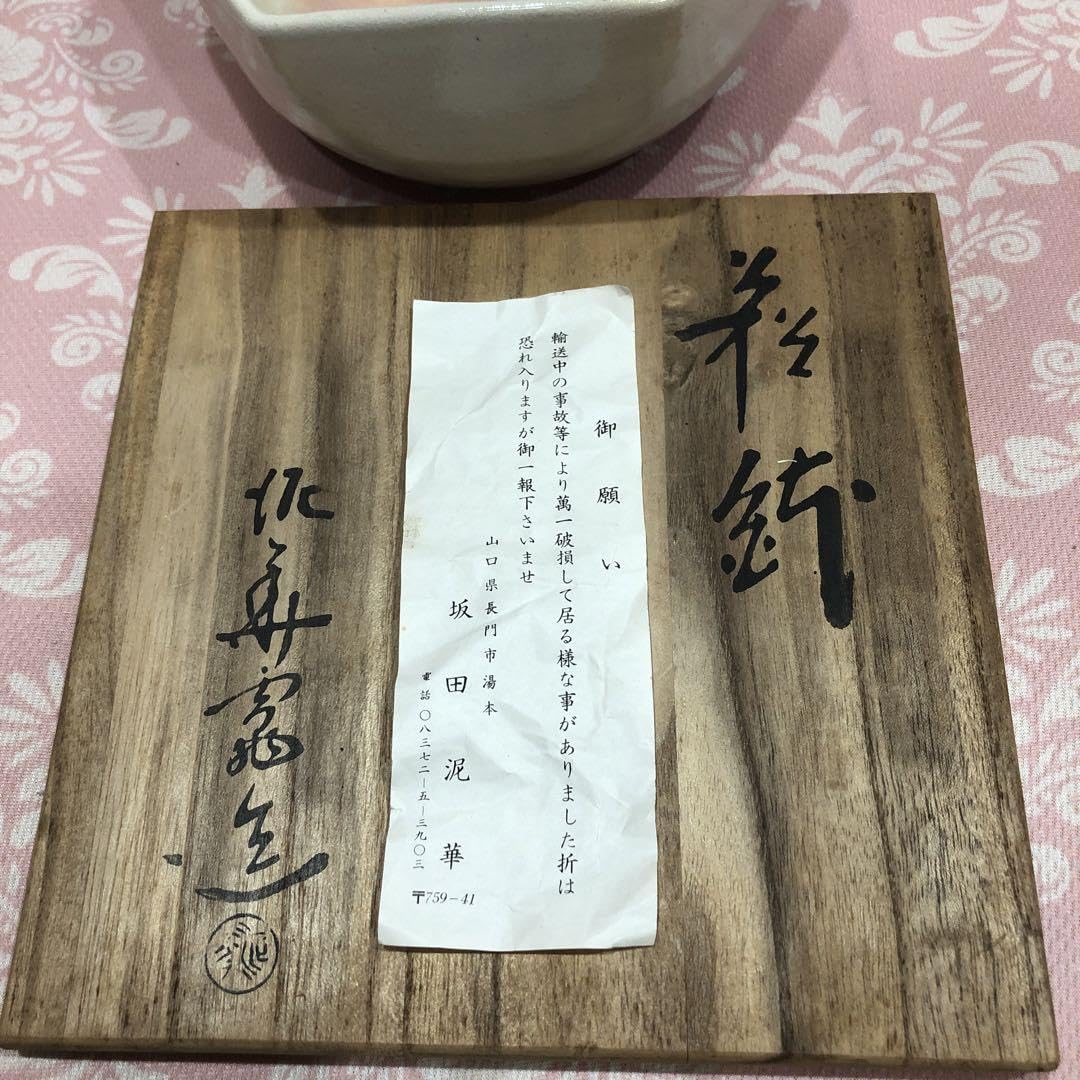 萩鉢
御願い
輸送中の事故等により萬一破損して居る様な事がありました折は
恐れ入りますが御一報下さいませ
山口県長門市湯本
坂田泥華
電話〇八三七二―五―三九〇三
〒759－41
泥華窯造